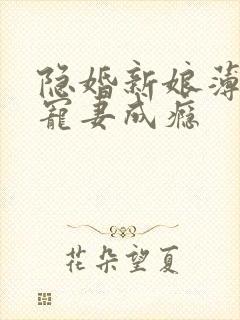 隐婚新娘薄
宠妻成瘾
花朵望夏